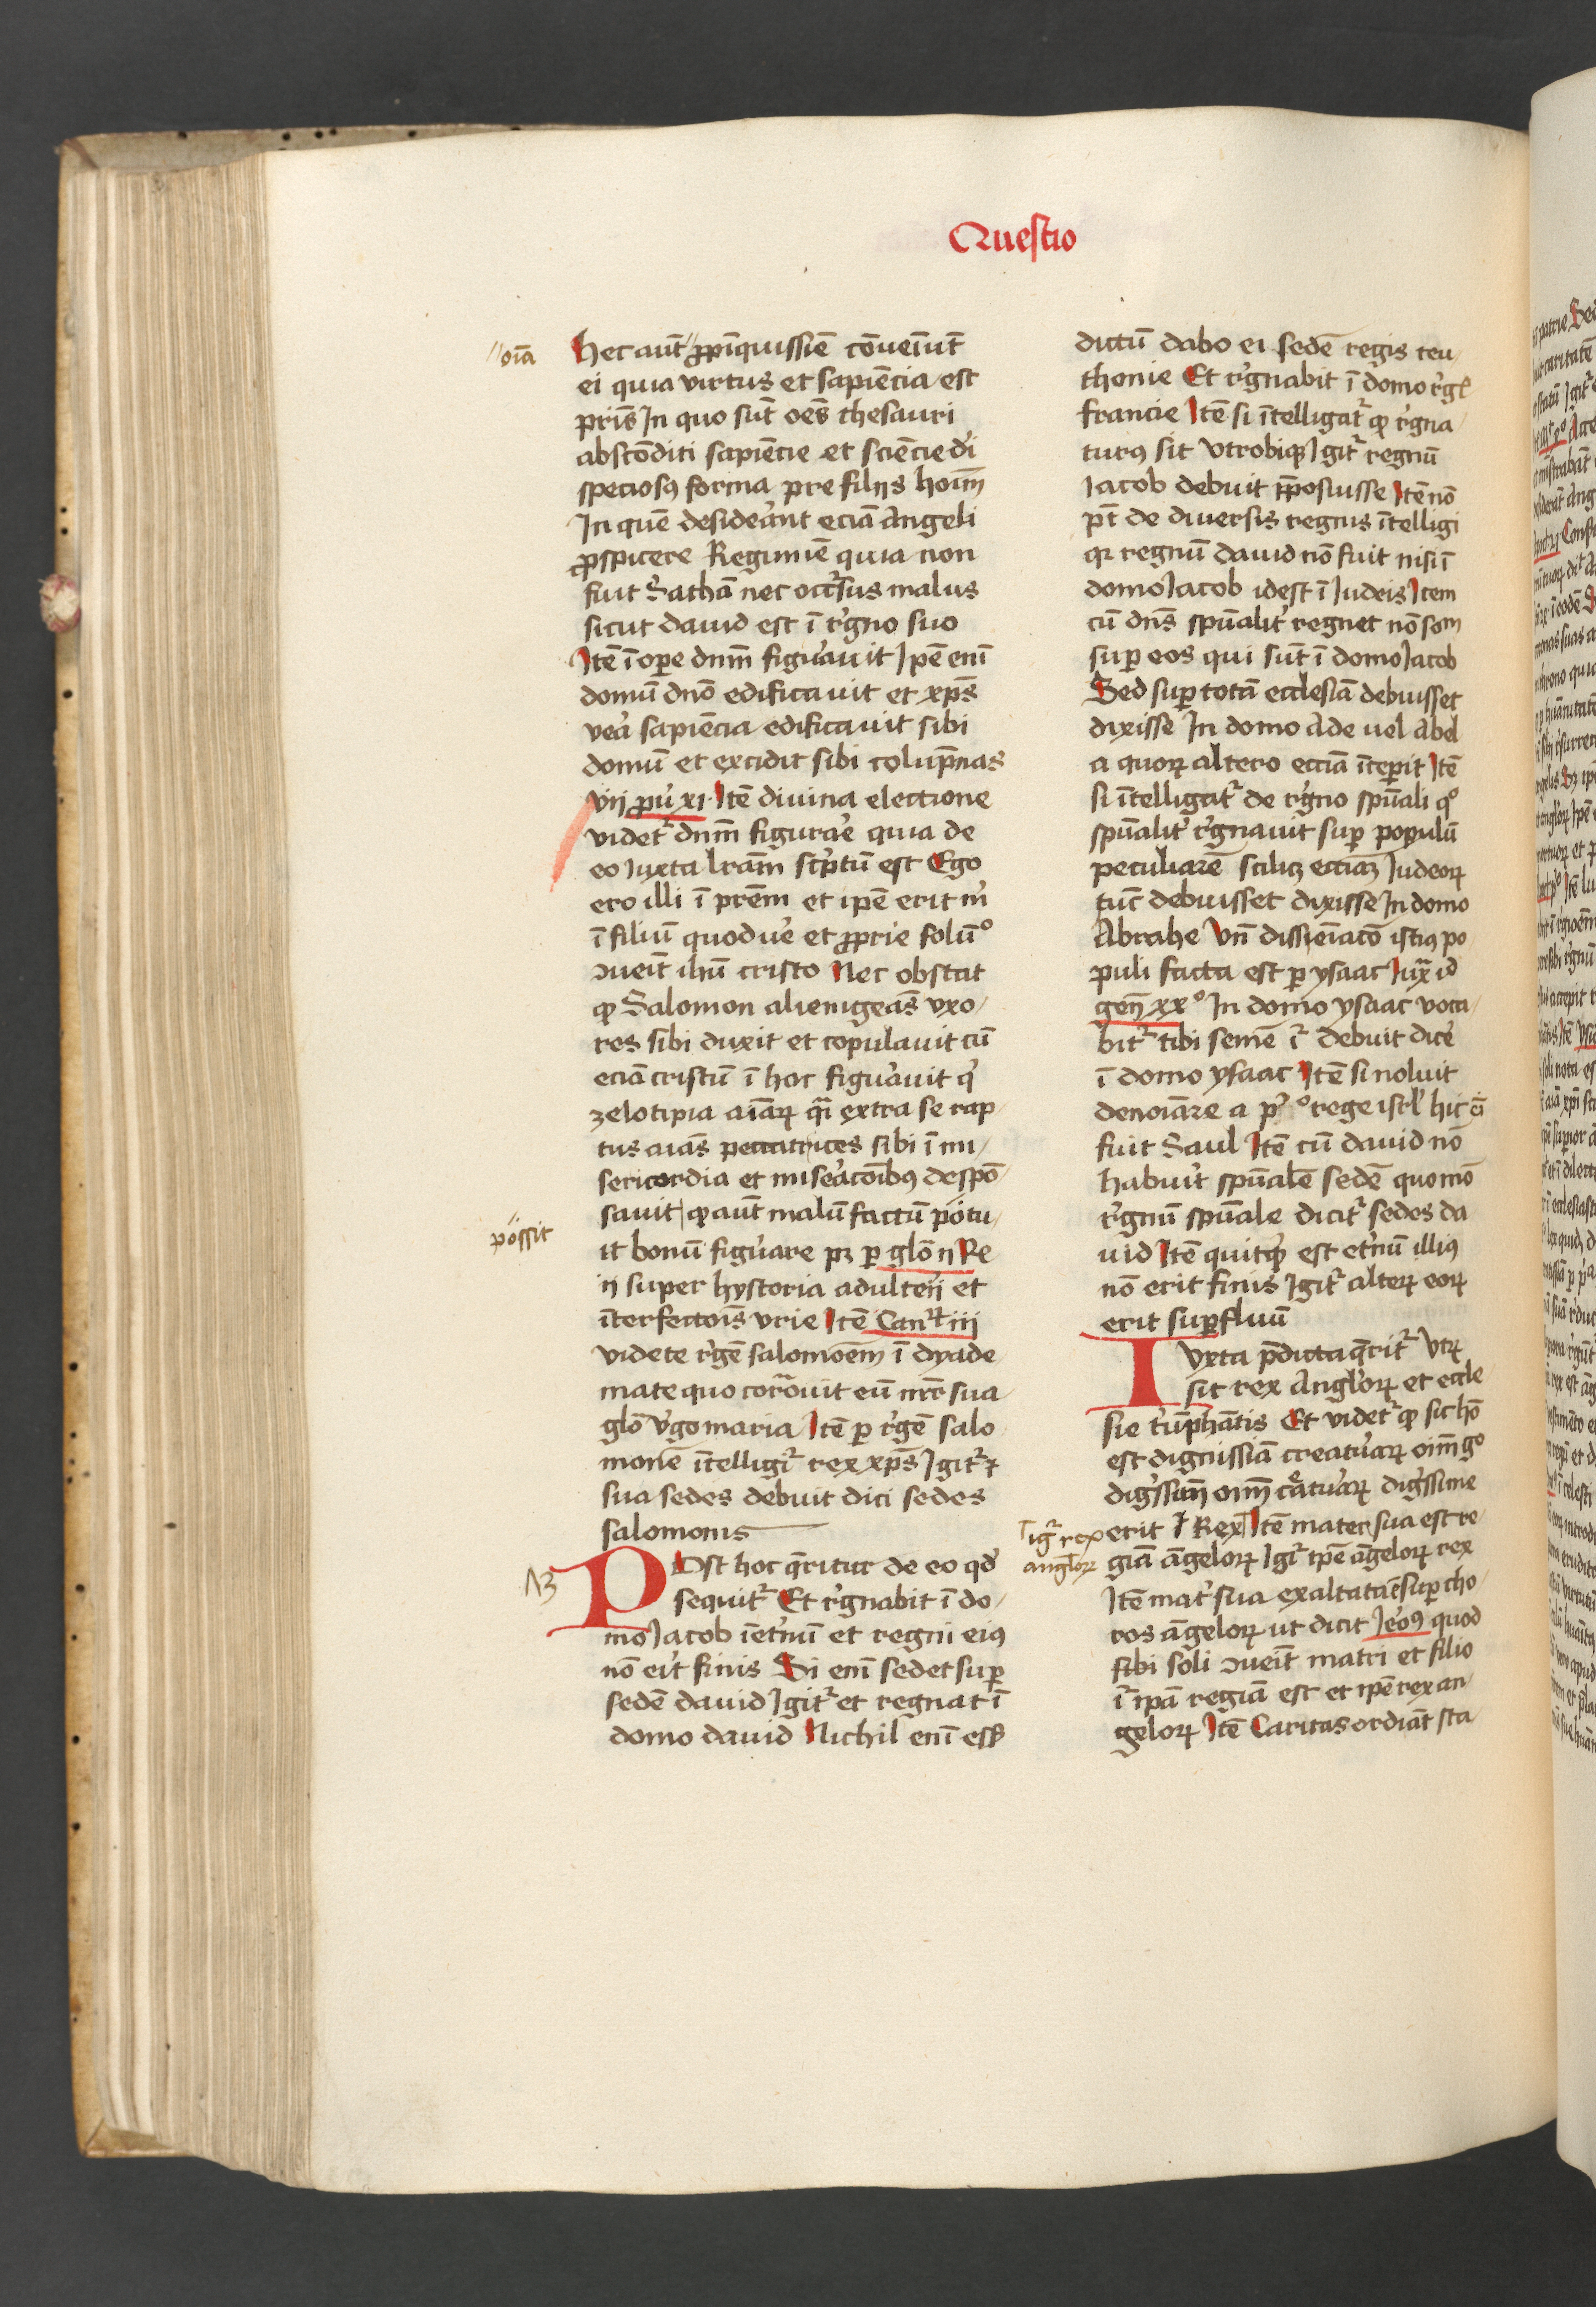 Questio
//oīa
Hec aūt // ꝓpīquissiē cōueīūt
ei quia virtus et sapiēcia est
pr̄is In quo sūt oēs thesauri
abscōditi sapiēcie et sciēcie di
speciosꝰ forma pre filijs hoīm
In quē desiderāt eciā Angeli
ꝓspicere Regimīe quia non
fuit Sathā nec occursus malus
sicut dauid est ī rꝰgno suo
Itē ī oꝑe dn̄m figurauit Ipē enī
domū dn̄o edificauit et xp̄s
vera sapiēcia edificauit sibi
domū et excidit sibi colūpnas
vij ꝓuꝰ xi· Itē diuina electione
videtꝛ dn̄m figurare quia de
eo iuxta lrām scriptū est Ego
ero illi ī prēm et ipē erit mꝰ
ī filiū quod vere et ꝓprie solūº
ↄueīt ih̄u cristo Nec obstat
ꝙ Salomon alienigeās vxo/
res sibi duxit et copulauit cū
eciā cristū ī hoc figurauit qꝰ
zelotipia aīarꝝ q̄i extra se rap/
tus aīas peccatrices sibi ī mi/
sericordia et miseracōibꝰ despō/
sauit ꝙ aūt malū factū potu/
possit
it bonū figurare pꝫ ꝑ glō ij Re
ij super hystoria adulterij et
īterfectois vrie Itē Cant iij
videte rꝰgē salomoēm ī dyade
mate quo coronauit eū mr̄ sua
glō vꝰgo maria Itē ꝑ rꝰgē salo
monē ītelligiꝛ rex xp̄s Igitꝛ ⁊
sua sedes debuit dici sedes
salomonis
13
POst hoc q̄ritur de eo qd̄
sequitꝛ Et rꝰgnabit ī do/
mo Iacob ī etꝰnū et regni eiꝰ
nō erit finis Si enī sedet suꝑ
sedē dauid Igitꝛ et regnat ī
domo dauid Nichil enī esꝫ
dictū dabo ei sedē regis teu/
thonie Et rꝰgnabit ī domo rꝰgꝭ
francie Itē si ītelligatꝛ ꝙ rꝰgna/
turꝰ sit vtrobiqꝫ Igitꝛ regnū
iacob debuit p̄posuisse Itē nō
pt̄ de diuersis regnis ītelligi
qꝛ regnū dauid nō fuit nisi ī
domo Iacob idest ī Iudeis Item
cū dn̄s spūalitꝰ regnet nō som
suꝑ eos qui sūt ī domo Iacob
Sed suꝑ totā ecclesiā debuisset
dixisse In domo Ade uel Abel
a quorꝝ altero eccīa īcepit Itē
si ītelligatꝛ de rꝰgno spūali qº
spūalitꝰ rꝰgnauit suꝑ populū
peculiarē scilicꝫ eccīaꝫ Iudeorꝝ
tūc debuisset dixisse In domo
Abrahe Vn̄ dissieīacō istiꝰ po
puli facta est ꝑ ysaac Iuxͣ id
gen̄ xxº In domo ysaac voca/
bitꝛ tibi semē iꝛ debuit dicere
ī domo ysaac Itē si noluit
denoīare a prº rege isrl hic eī
fuit Saul Itē cū dauid nō
habuꝰit spūalē sedē quomō
rꝰgnū spūale dicitꝛ sedes da
uid Itē quitqꝰd est etꝰnū illiꝰ
nō erit finis Igitꝛ alterꝝ eorꝝ
erit suꝑfluū
IVxta p̄dicta q̄ritꝛ vtꝝ
sit rex Anglorꝝ et eccle
sie tꝰūphātis Et videtꝛ ꝙ sic hō
est dignissīa creaturarꝝ oīm gº
digꝰssim̄ oīm cͣturarꝝ digꝰssime
erit ⸢ Rex Itē mater sua est re/
⸢igꝛ rex
anglorꝝ
giā āgelorꝝ Igꝛ ipē āgelorꝝ rex
Itē matꝰ sua exaltata ē suꝑ cho/
ros āgelorꝝ ut dicit Ieroꝰ quod
sibi soli ↄueīt matri et filio
iꝛ ipā regiā est et ipē rex an/
gelorꝝ Itē Caritas ordiāt sta/